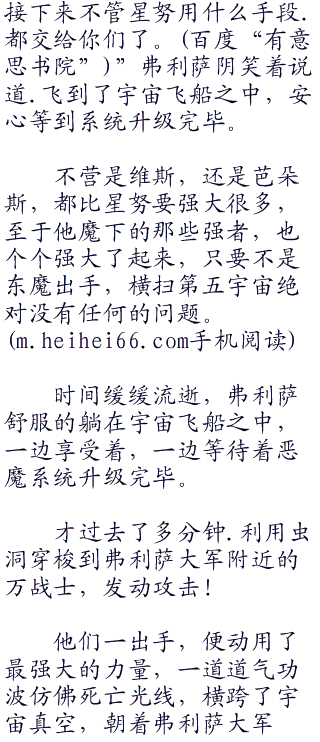 接下来不管星努用什么手段.
都交给你们了。(百度“有意
思书院”)”弗利萨阴笑着说
道.飞到了宇宙飞船之中，安
心等到系统升级完毕。
不营是维斯，还是芭朵
斯，都比星努要强大很多，
至于他魔下的那些强者，也
个个强大了起来，只要不是
东魔出手，横扫第五宇宙绝
对没有任何的问题。
(m.heihei66.com手机阅读)
时间缓缓流逝，弗利萨
舒服的躺在宇宙飞船之中，
一边享受着，一边等待着恶
魔系统升级完毕。
才过去了多分钟.利用虫
洞穿梭到弗利萨大军附近的
万战士，发动攻击！
他们一出手，便动用了
最强大的力量，一道道气功
波仿佛死亡光线，横跨了宇
宙真空，朝着弗利萨大军